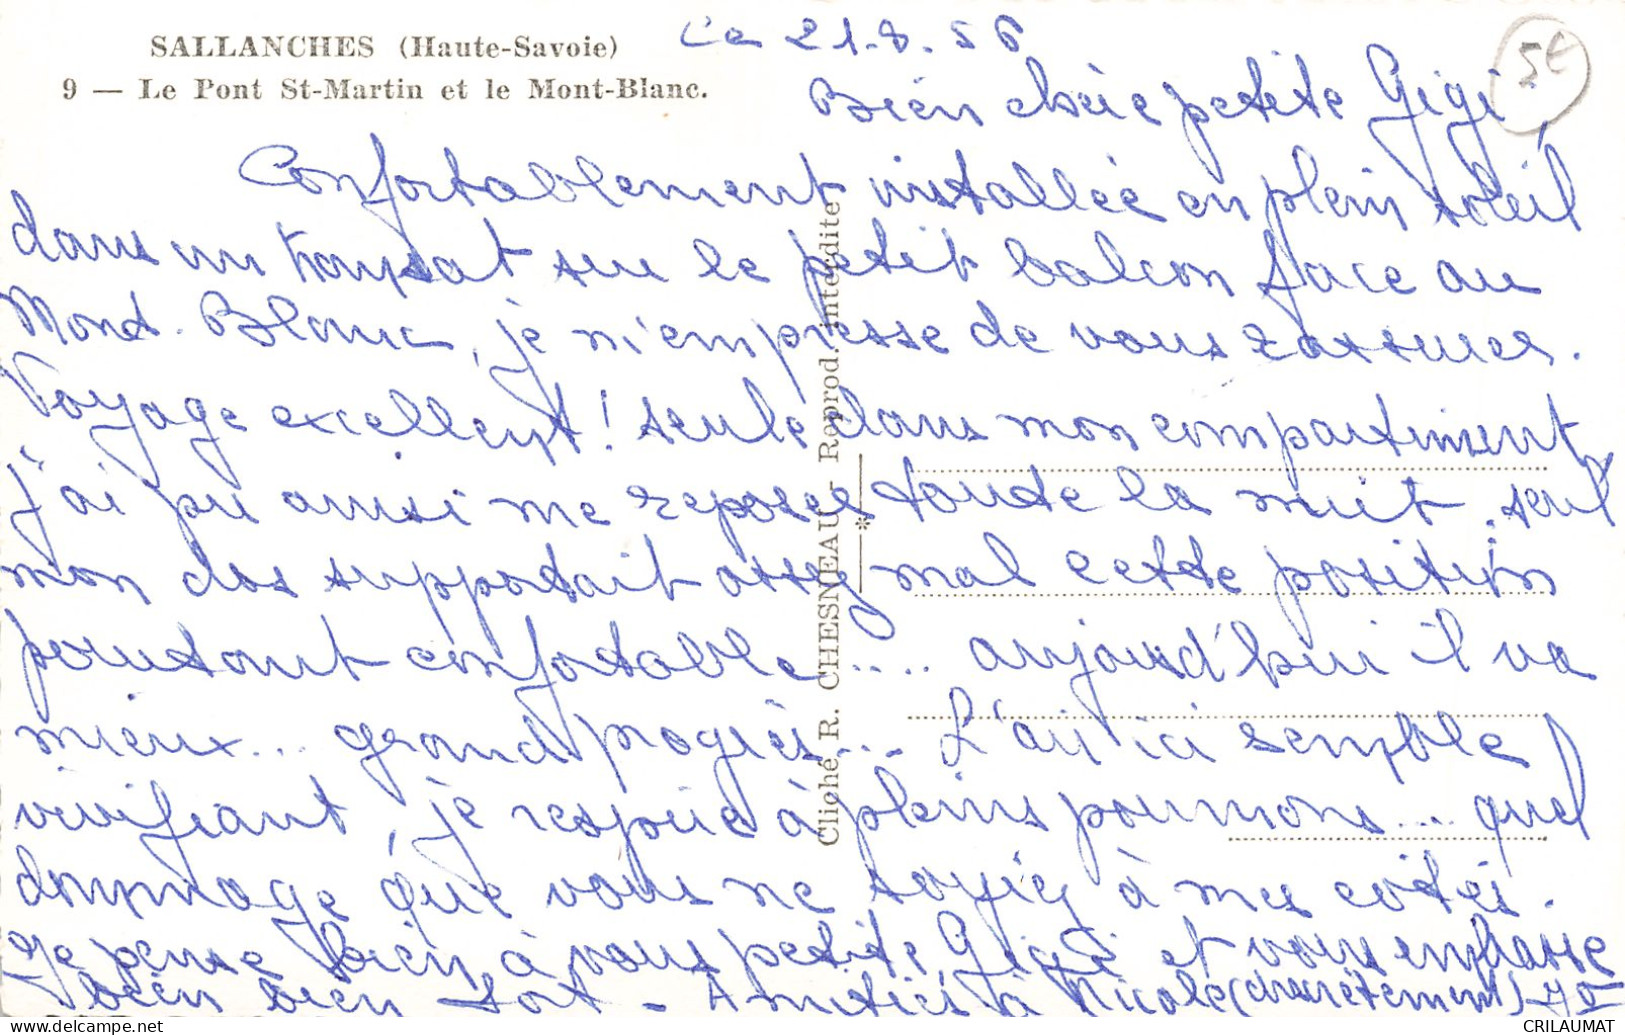 SALLANCHES (Haute-Savoie)
9 — Le Pont St-Martin et le Mont-Blanc.
Ce 21.8.56
5€
Bien chère petite Gigi,
Confortablement installée en plein soleil
dans un transat sur le petit balcon face au
Mont-Blanc, je m'empresse de vous rassurer.
Voyage excellent ! seule dans mon compartiment
j'ai pu ainsi me reposer toute la nuit. seul
mon dos supportait assez mal cette position
pourtant confortable .... aujourd'hui il va
mieux... grand progrès... L'air ici semble
vivifiant, je respire à pleins poumons... quel
dommage que vous ne soyiez à mes côtés.
Je pense bien à vous petite Gigi et vous embrasse
bien bien fort - Amitiés à Nicole (discrètement)
Cliché R. CHESNEAU - Reprod. interdite
*
CRILAUMAT